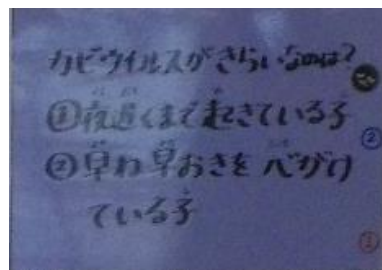 カビウイルスがきらいなのは？
①夜遅くまで起きている子
②早ね早おきを心がけ
ている子
②
①